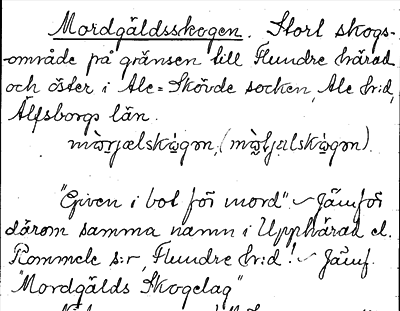 Mordgäldsskogen. Stort skogs-
område på gränsen till Flundre härad
och öster i Ale=Skövde socken, Ale h:d,
Älfsborgs län.
"Given i bot för mord" ~ Jämför
därom samma namn i Upphärad el.
Rommele s:r, Flundre h:d! ~ Jämf.
"Mordgälds Skogelag"